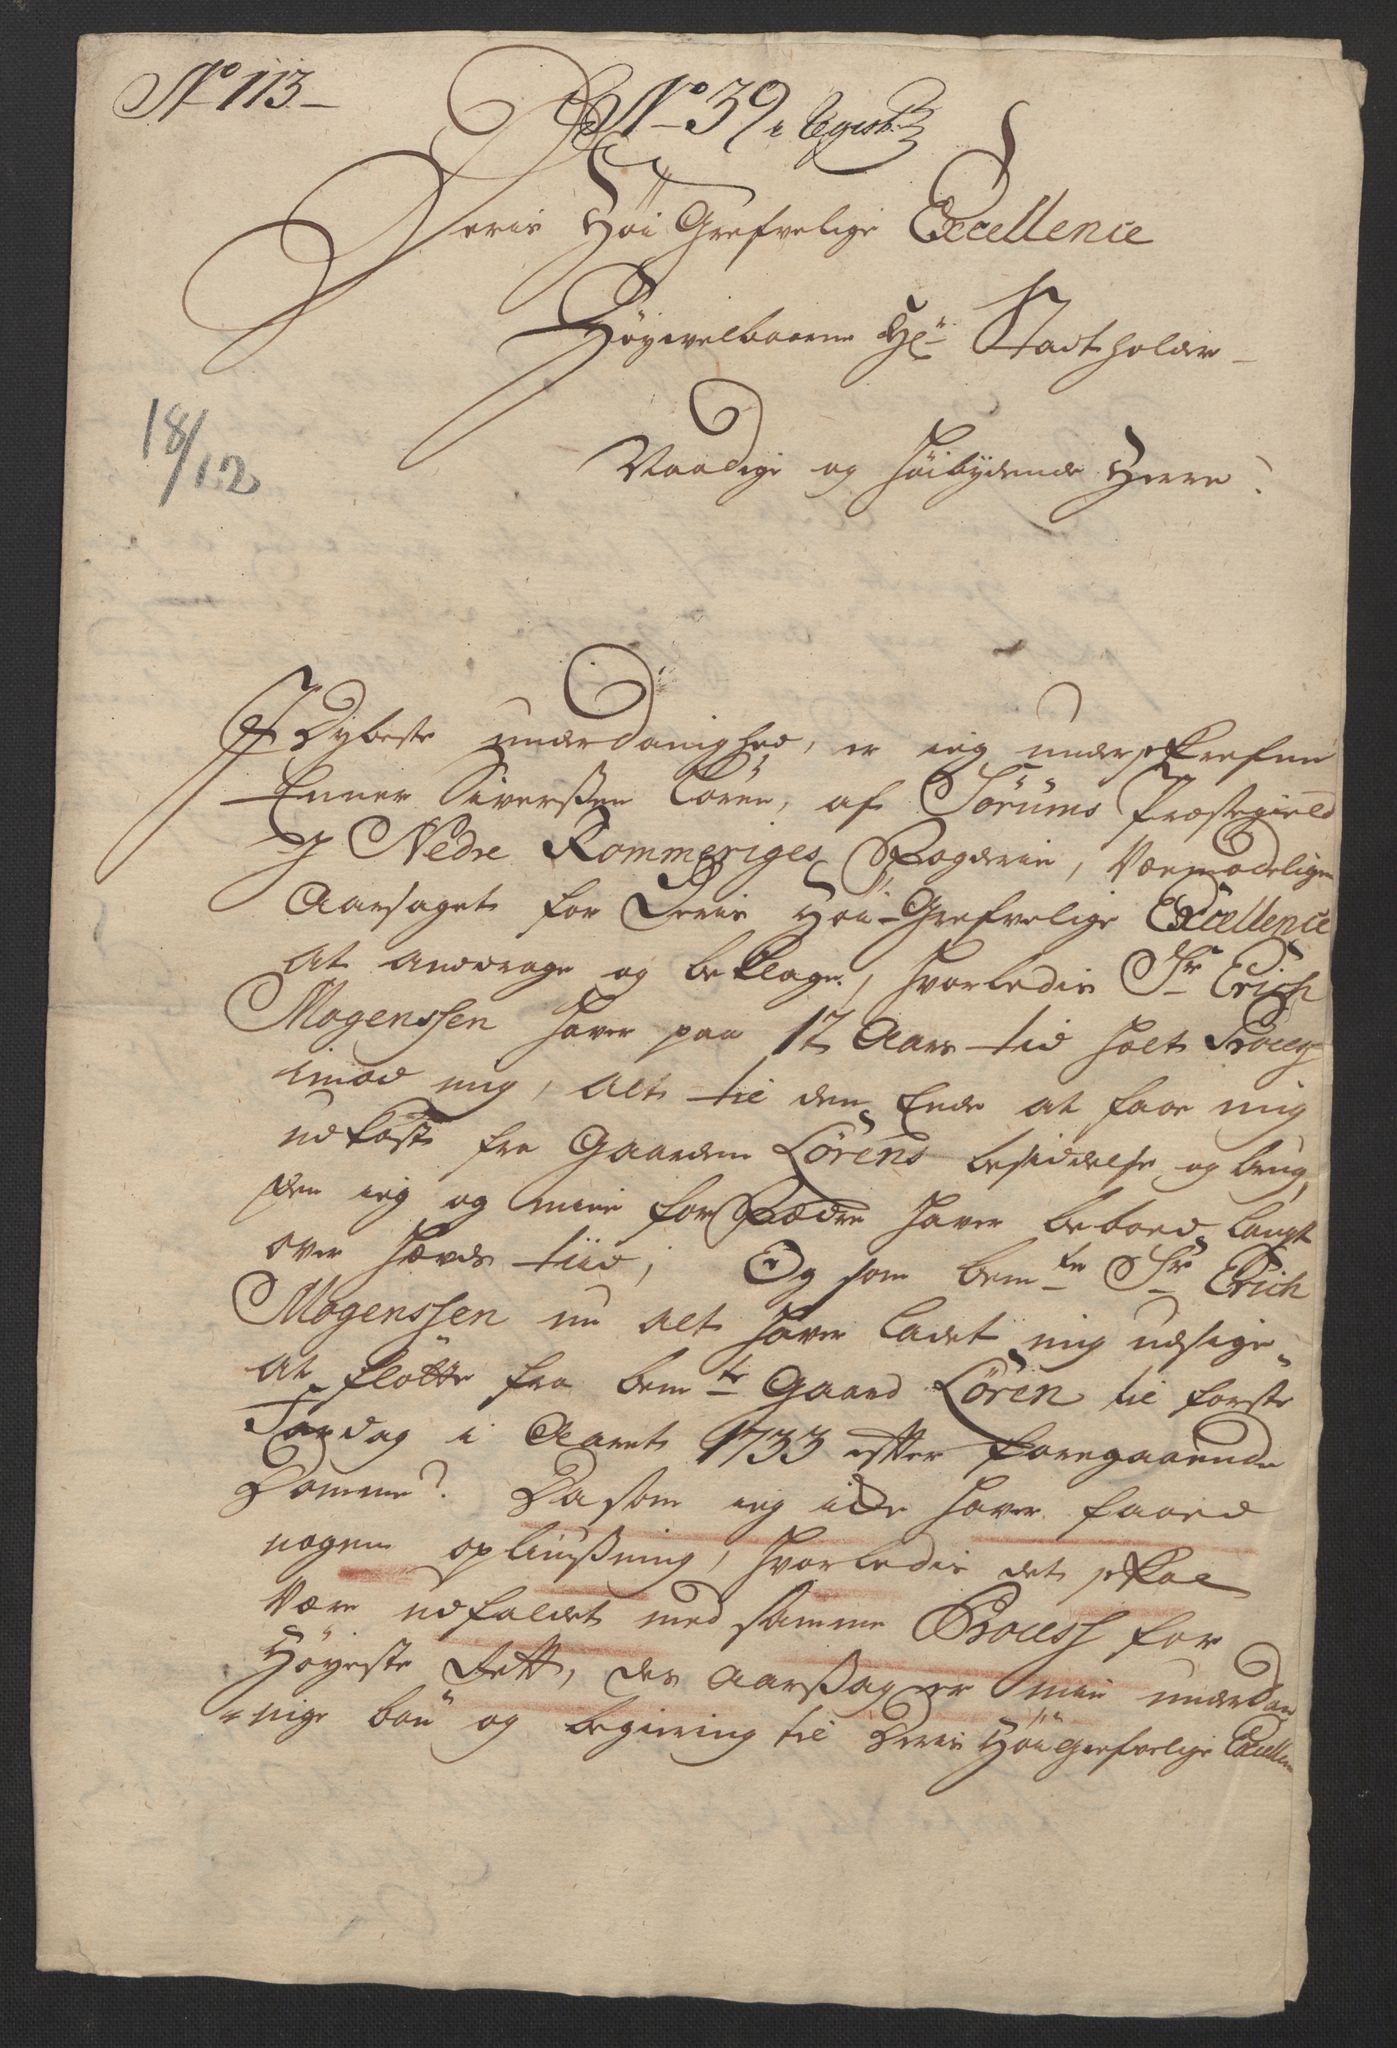 No 113
No 39 i
Deris Høi Grefvelige Excellence
Høyvelbaarne Hr Stadtholder
Naadige og Høibydende Herre
I Dybeste underdanighed, er ieg underskrefne
Enner Siverssen Lören, af Sörums Præstegield
I Nedre Rommeriges Fogderie, Væemodeligen
Aarsaget for Deris Høi-Grefvelige Excellence
at anddrage og beklage, hvorledis Sr Erich
Mogenssen haver paa 17 Aars tid holt Process
imod mig, alt til den Ende at faae mig
udkast fra Gaarden Lörens besiddelse og brug,
den ieg og mine forFædre haver beboed langt
over hævds tiid; Og som bemte Sr Erich
Mogenssen nu alt haver ladet mig udsige
at flötte fra bemte Gaard Lören til förste
Fardag i Aaret 1733 efter foregaaende
Domme. Da som ieg icke haver faaed
nogen opliusning, hvorledis det skal
være udfaldet med samme Process for
Høyeste Rett, des aarssag er min underdan
nige bön og begiering til Deris Høi Grefvelige Excellen
18/12